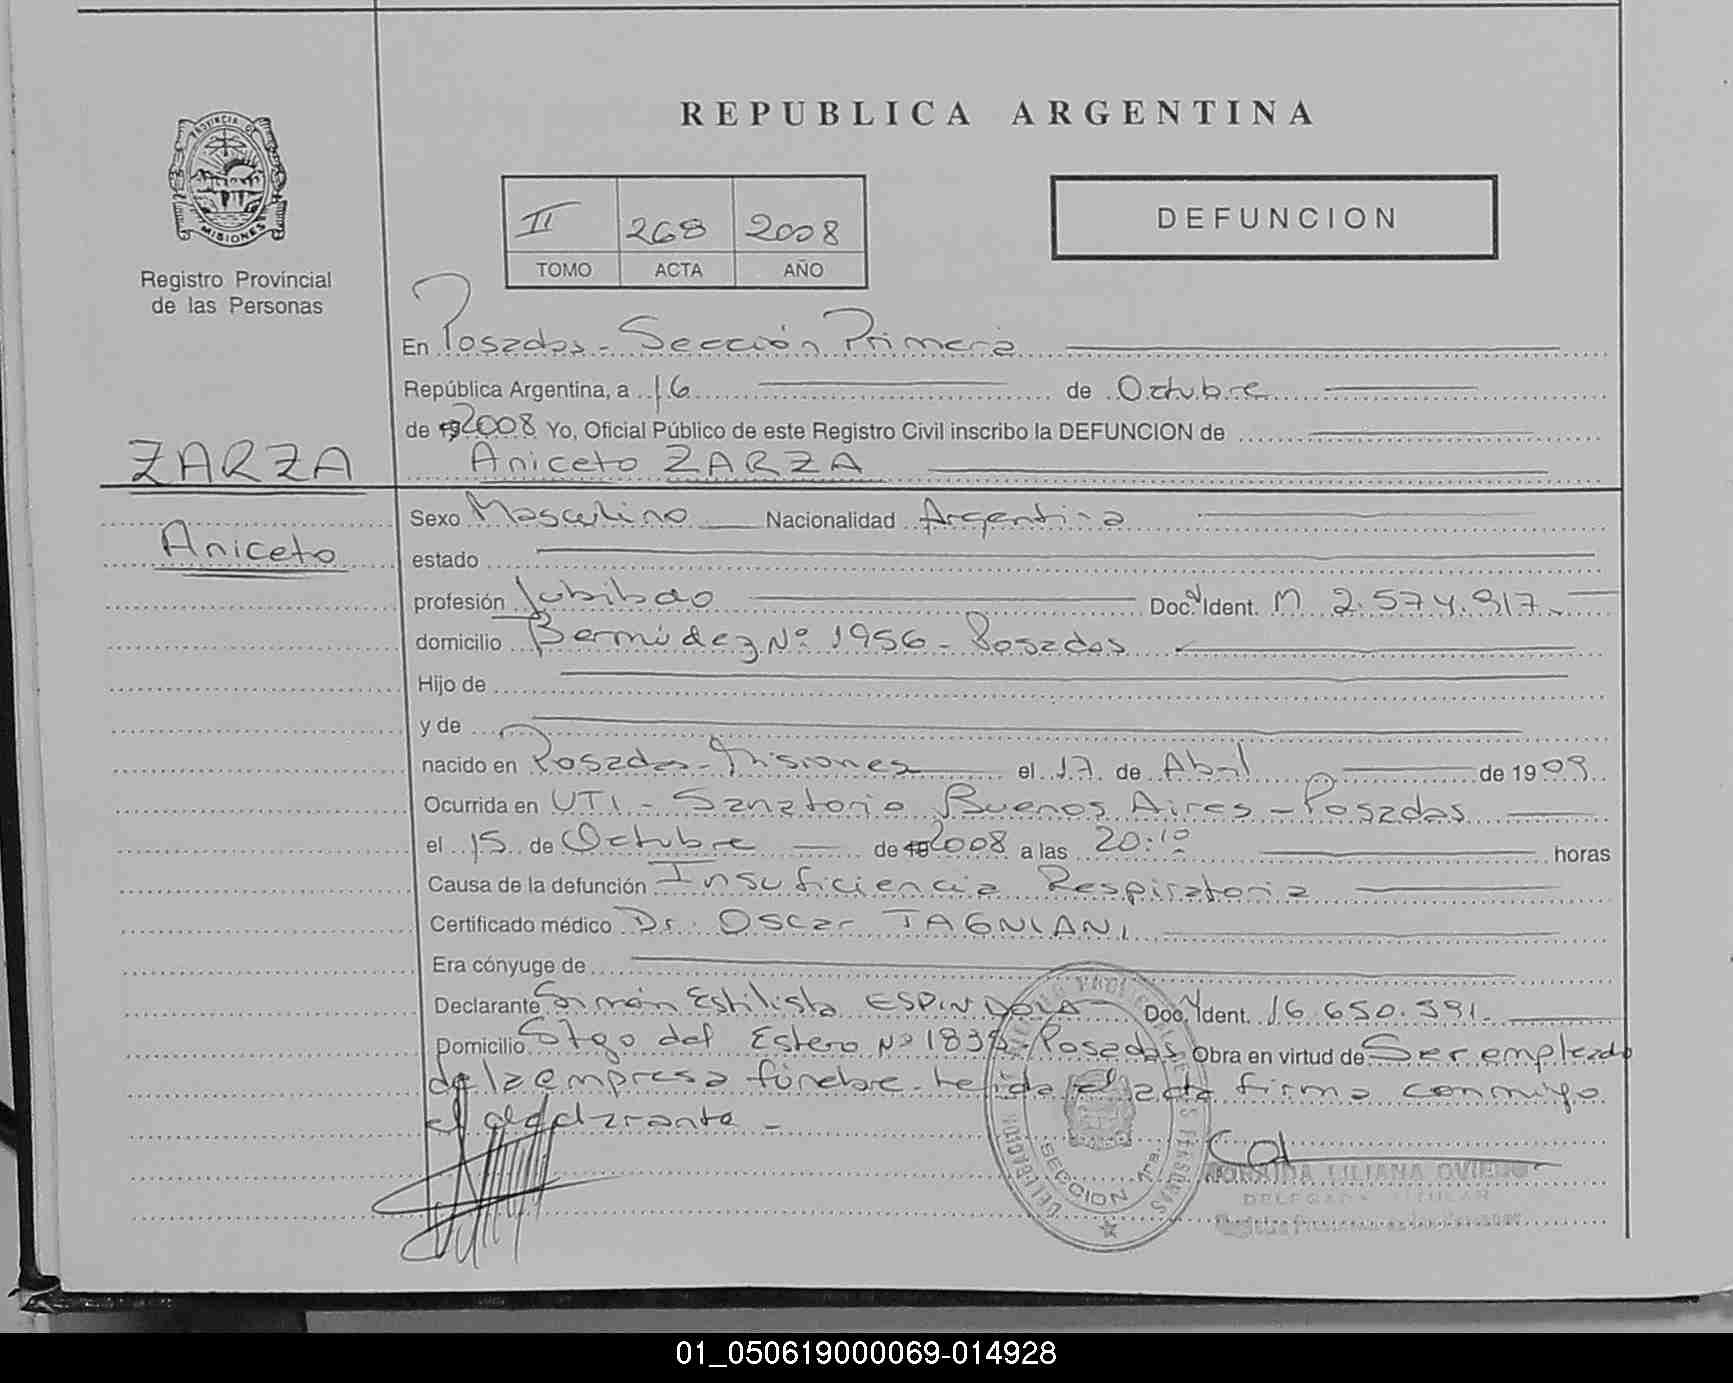 REPUBLICA ARGENTINA
PROVINCIA DE
MISIONES
Registro Provincial
de las Personas
II 268 2008
TOMO ACTA AÑO
DEFUNCION
En Posadas - Sección Primera
República Argentina, a 16 de Octubre
de 19 2008 Yo, Oficial Público de este Registro Civil inscribo la DEFUNCION de
ZARZA
Aniceto ZARZA
Aniceto
Sexo Masculino Nacionalidad Argentina
estado
profesión Jubilado Doc. Ident. M 2.574.917.
domicilio Bermúdez Nº 1956 - Posadas
Hijo de
y de
nacido en Posadas - Misiones el 17 de Abril de 1909
Ocurrida en UTI - Sanatorio Buenos Aires - Posadas
el 15 de Octubre de 19 2008 a las 20:10 horas
Causa de la defunción Insuficiencia Respiratoria
Certificado médico Dr. Oscar TAGNIANI
Era cónyuge de
Declarante Simón Estilista ESPINDOLA Doc. Ident. 16.650.591.
Domicilio Stgo del Estero Nº 1835 - Posadas Obra en virtud de Ser empleado
de la empresa fúnebre. leída el acta firma conmigo
el declarante -
SECCION 1ra.
LILIANA OVIEDO
DELEGADA TITULAR
01_050619000069-014928